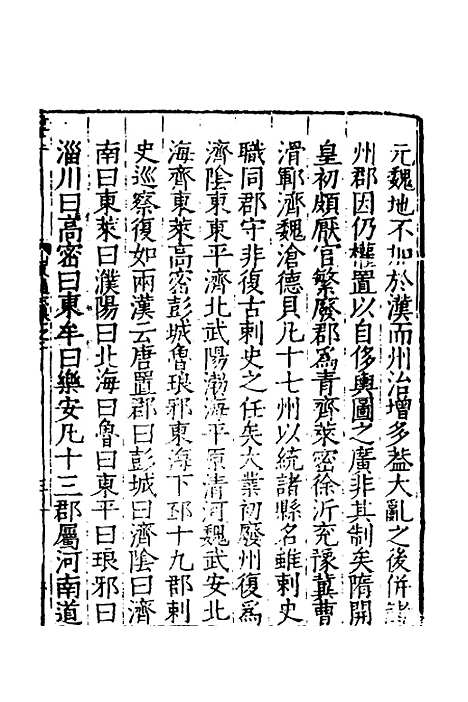 元魏地不加於漢而州治增多葢大亂之後併
州郡因仍權置以自侈輿圖之廣非其制矣隋開
皇初頗厭官繁廢郡爲青齊萊密徐沂兖豫冀曹
滑鄆濟魏滄德貝凡十七州以統諸縣名雖刺史
職同郡守非復古刺史之任矣大業初廢州復爲
濟陰東東平濟北武陽渤海平原清河魏武安北
海齊東萊高密彭城魯琅邪東海下邳十九郡刺
史巡察復如兩漢云唐置郡曰彭城曰濟陰曰濟
南曰東萊曰濮陽曰北海曰魯曰東平曰琅邪曰
淄川曰高密曰東牟曰樂安凡十三郡屬河南道